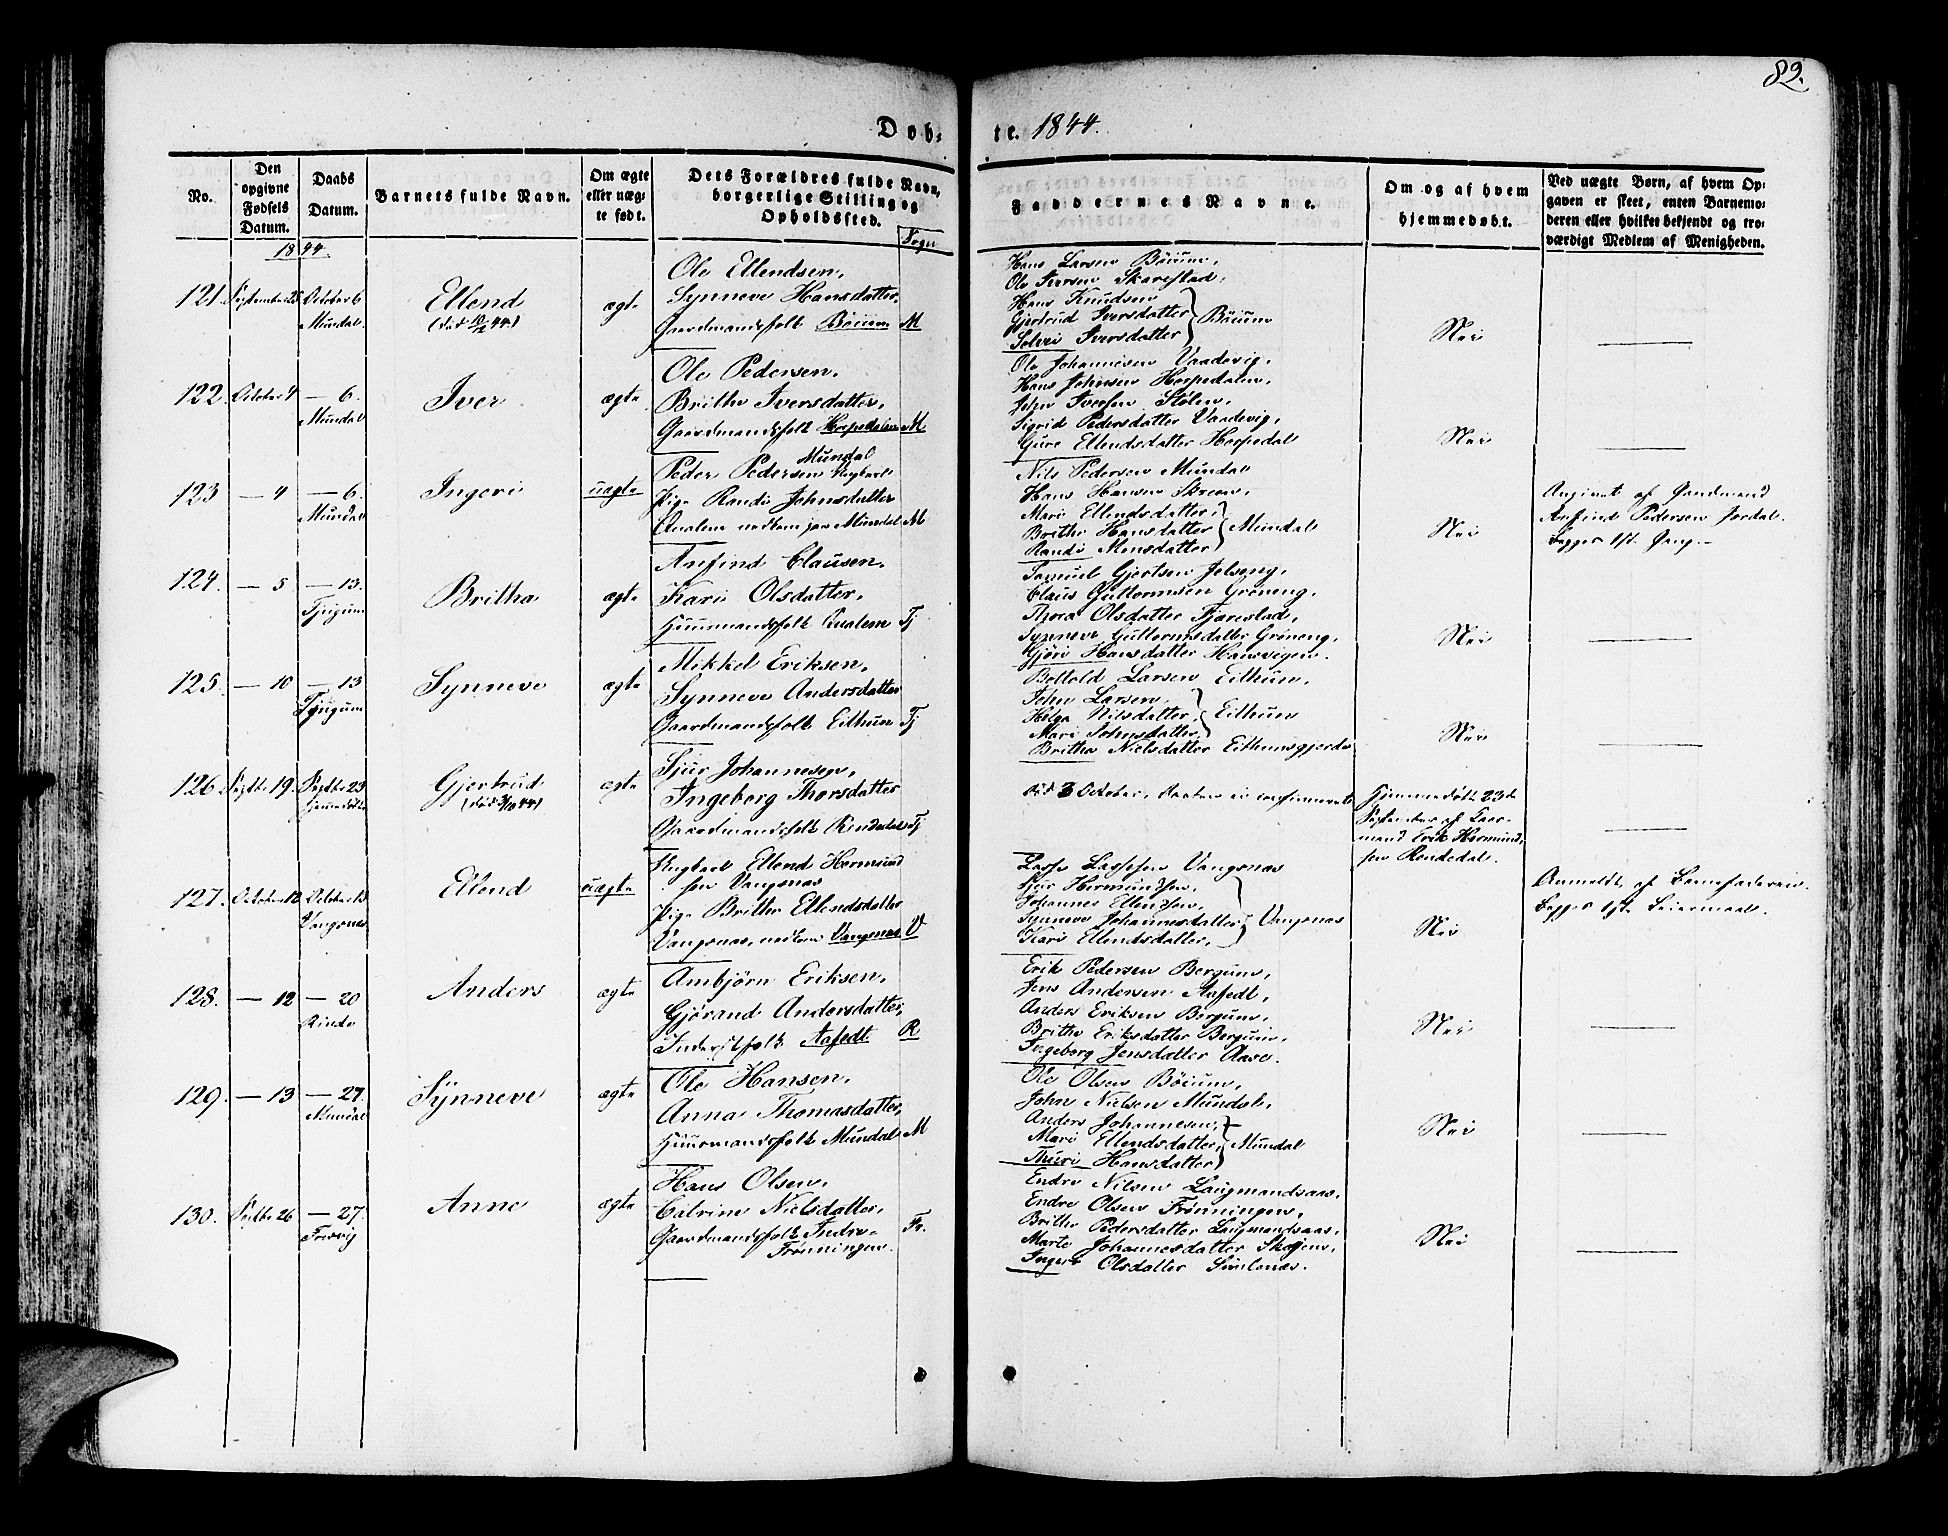 82.
Døb-
te. 1844.
No.
Den opgivne Fødsels Datum.
Daabs Datum.
Barnets fulde Navn.
Om ægte eller uægte født.
Dets Forældres fulde Navn, borgerlige Stilling og Opholdssted.
Sogn
Faddernes Navne.
Om og af hvem hjemmedøbt.
Ved uægte Børn, af hvem Opgaven er skeet, enten Barnemoderen eller hvilket bekjendt og troværdigt Medlem af Menigheden.
1844.
121. September 25 October 6 Mundal.
Ellend
ægte
Ole Ellendsen,
Synneve Hansdatter,
Gaardmandsfolk Böium M
Hans Larsen Böium,
Ole Iversen Skarestad,
Hans Knudsen
Gjertrud Iversdatter Böium
Solvei Iversdatter
Nei
122. October 4 — 6. Mundal
Iver
ægte
Ole Pedersen,
Brithe Iversdatter,
Gaardmandsfolk Horpedalen M
Ole Johannesen Vaadevig,
Hans Johnsen Horpedalen,
John Iversen Stölen,
Sigrid Pedersdatter Vaadevig,
Gure Ellendsdatter Horpedal
Nei
123 — 4 — 6. Mundal
Ingeri
uægte
Peder Pedersen Mundal Ungkarl
Pige Randi Johnsdatter
Mundal M
Nils Pedersen Mundal
Hans Hansen Skreen,
Mari Ellendsdatter,
Brithe Hansdatter Mundal
Randi Monsdatter
Nei
Angivet af Gaardmand
Anfind Pedersen Jordal.
begges 1ste Gang.
124. — 5 — 13. Tjugum
Britha
ægte
Anfind Clausen,
Kari Olsdatter,
Huusmandsfolk Qualem Tj
Samuel Gjertsen Jelseng,
Claus Guttormsen Gröneng,
Thora Olsdatter Fjærestad,
Synneve Guttormsdatter Gröneng,
Gjöri Hansdatter Hansvigen.
Nei
125. — 10 — 13 Tjugum
Synneve
ægte
Mikkel Eriksen,
Synneve Andersdatter
Gaardmandsfolk Eithun Tj
Bottold Larsen Eithun,
John Larsen,
Helga Nilsdatter, Eithun
Mari Johnsdatter,
Britha Nielsdatter Eithunsgjerde
Nei
126. Septbr 19. Septbr 23 hjemmedøbt
Gjertrud
(död 3/10 44)
ægte
Sjur Johannesen,
Ingeborg Thorsdatter
Gaardmandsfolk Rindedal Tj
död 3 October,
Hjemmedöbt 23de
September af Gaardmand Erik Hermundsen Rendedal.
127. October 12 October 13 Vangsnes
Ellend
uægte
Ungkarl Ellend Hermundsen Vangsnæs
Pige Brithe Ellendsdatter
Vangsnæs, Vangsnæs V
Lasse Lassesen Vangsnæs
Sjur Hermundsen,
Johannes Ellendsen,
Synneve Johannesdatter, Vangsnæs
Kari Ellendsdatter,
Nei
Anmeldt af Barnefaderen.
Begges 1ste Leiermaal.
128. — 12 — 20 Rinde
Anders
ægte
Ambjörn Eriksen,
Gjörand Andersdatter,
Inderstfolk Aafedt. R
Erik Pedersen Bergum,
Jens Andersen Aafedt,
Anders Eriksen Bergum,
Brithe Eriksdatter Bergum,
Ingeborg Jensdatter Aare.
Nei
129. — 13 — 27. Mundal
Synneve
ægte
Ole Hansen,
Anna Thomasdatter,
Huusmandsfolk Mundal M
Ole Olsen Böium,
John Nielsen Mundal,
Anders Johannesen,
Mari Ellendsdatter, Mundal
Thuri Hansdatter
Nei
130. Septbr 26 — 27.
Anne
ægte
Hans Olsen,
Catrine Nielsdatter,
Gaardmandsfolk Indre-
Frönningen. Fr.
Endre Nilsen
Endre Olsen Frönningen,
Brithe Pedersdatter
Marte Johannesdatter
Olsdatter
Nei